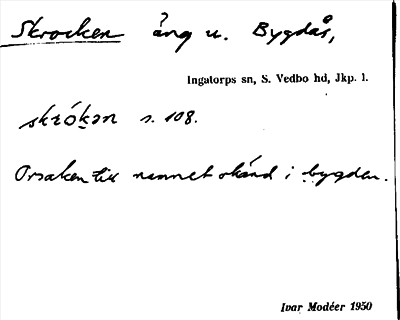 Skrocken äng u. Bygdås,
Ingatorps sn, S. Vedbo hd, Jkp. l.
skrók̬ən s. 108.
Orsaken till namnet okänd i bygden.
Ivar Modéer 1950